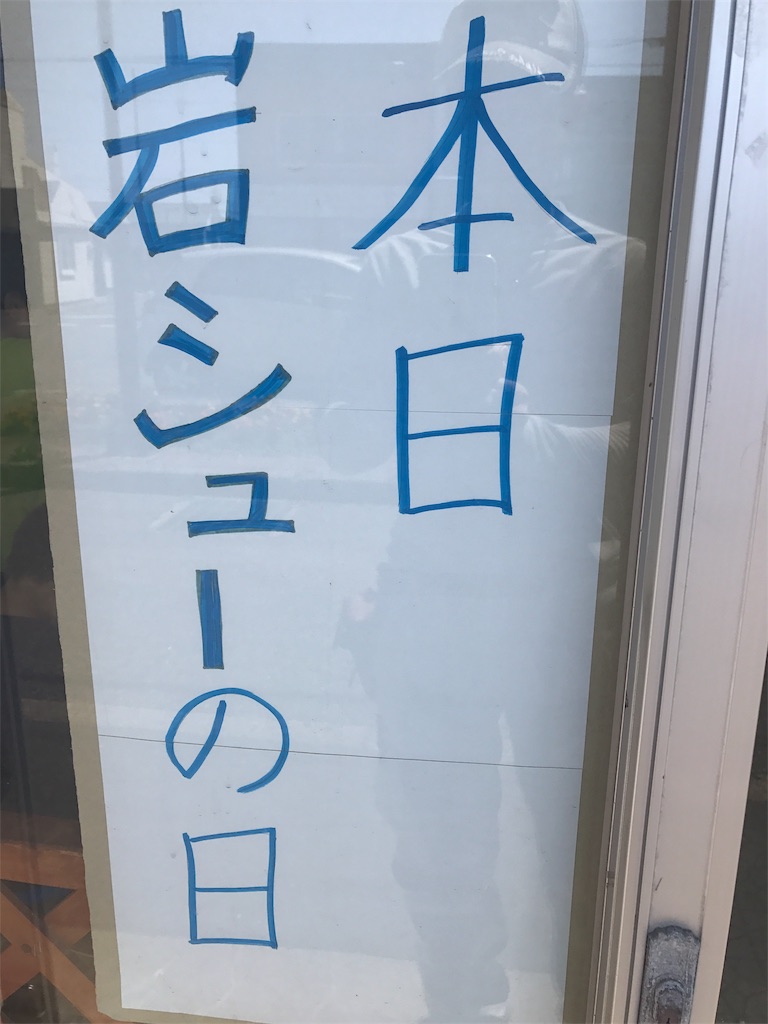 本日
岩シューの日